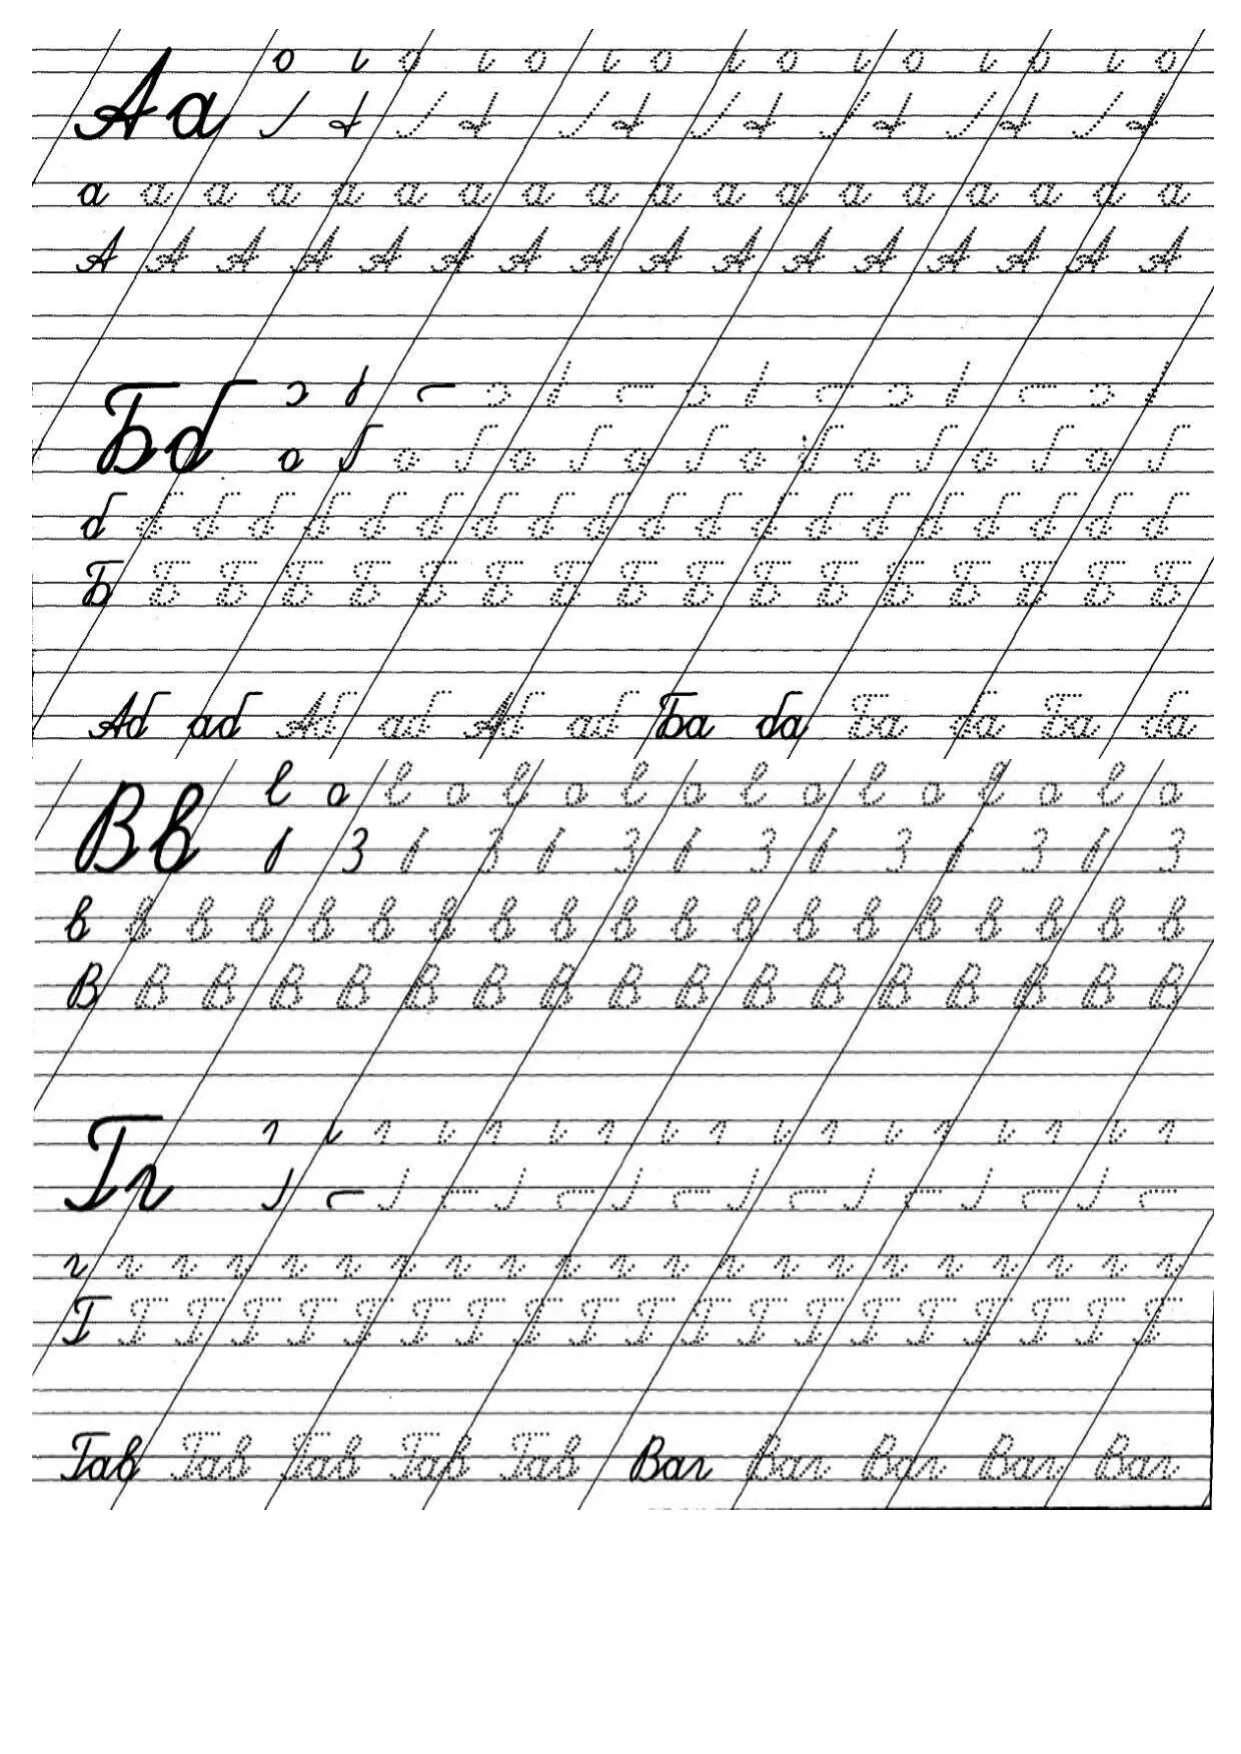 Аа
а а а а а а а а а а а а а а а а а а
А А А А А А А А А А А А А А А А
Бб
б б б б б б б б б б б б б б б б б б б б
Б Б Б Б Б Б Б Б Б Б Б Б Б Б Б Б Б
Аб аб Аб аб Аб аб Ба ба Ба ба Ба ба
Вв
в в в в в в в в в в в в в в в в в в в
В В В В В В В В В В В В В В В В В
Гг
г г г г г г г г г г г г г г г г г г г г г
Г Г Г Г Г Г Г Г Г Г Г Г Г Г Г Г Г Г Г Г
Гав Гав Гав Гав Гав Ваг Ваг Ваг Ваг Ваг